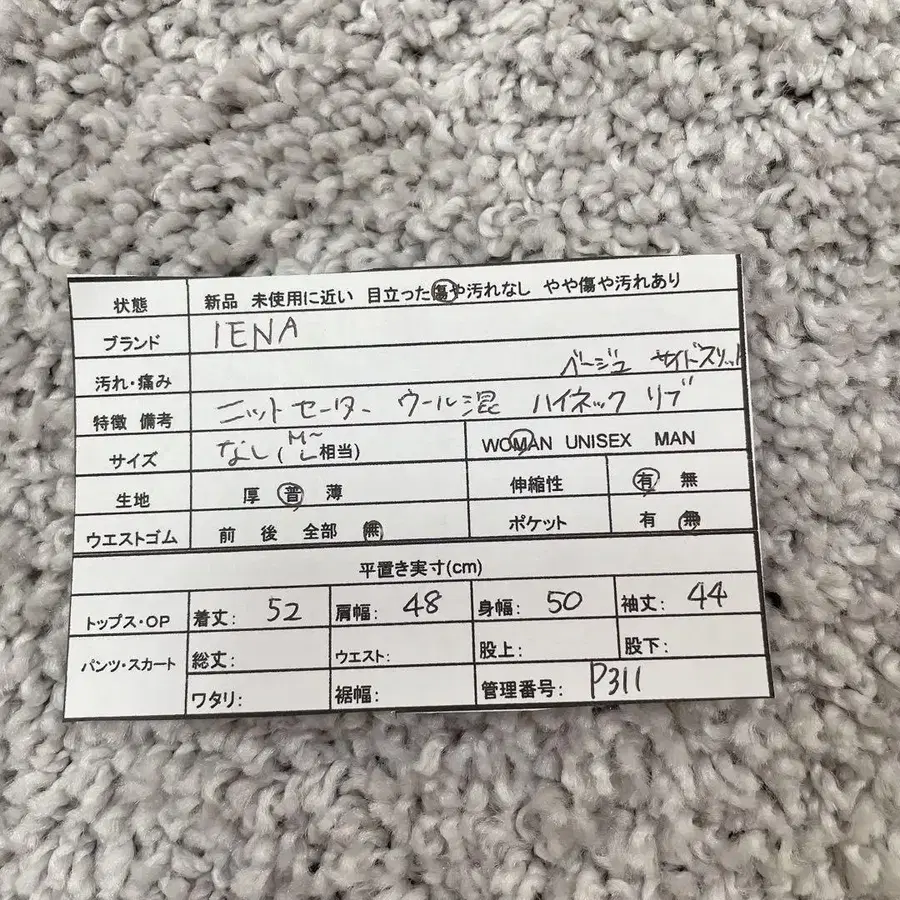 状態 新品 未使用に近い 目立った傷や汚れなし やや傷や汚れあり
ブランド IENA
汚れ・痛み ベージュ サイドスリット
特徴 備考 ニットセーター ウール混 ハイネック リブ
サイズ なし(M~L相当) WOMAN UNISEX MAN
生地 厚 普 薄 伸縮性 有 無
ウエストゴム 前 後 全部 無 ポケット 有 無
平置き実寸(cm)
トップス・OP 着丈: 52 肩幅: 48 身幅: 50 袖丈: 44
パンツ・スカート 総丈: ウエスト: 股上: 股下:
ワタリ: 裾幅: 管理番号: P311